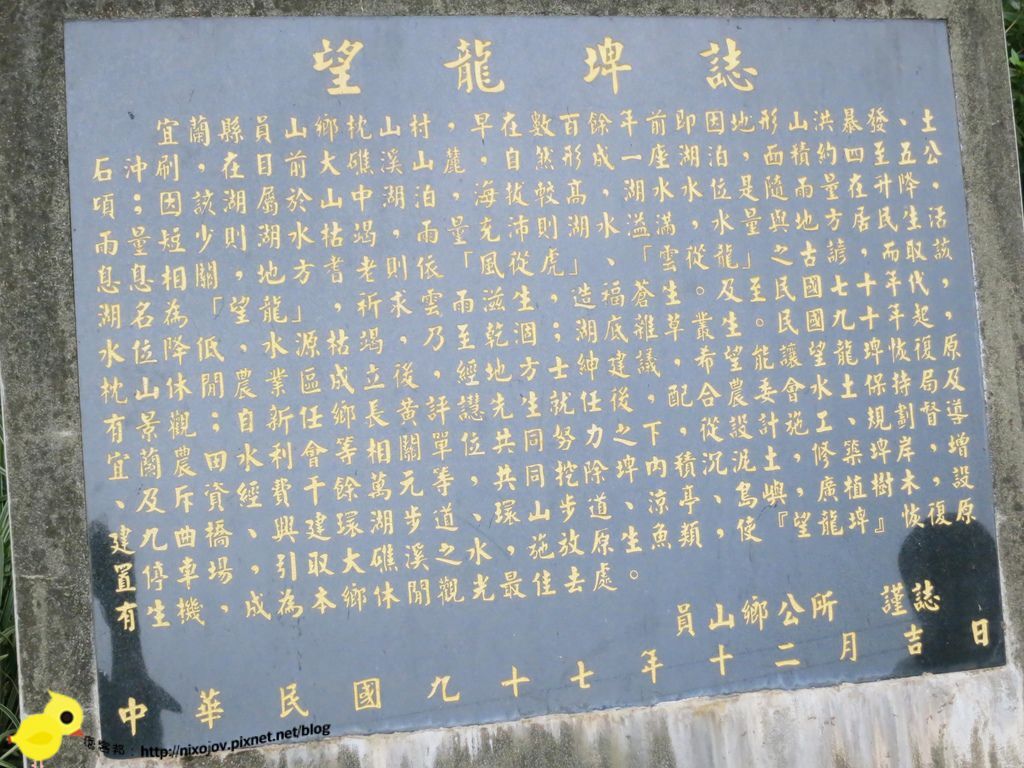 望龍埤誌
宜蘭縣員山鄉枕山村，早在數百餘年前即因地形山洪暴發、土
石沖刷，在目前大礁溪山麓，自然形成一座湖泊，面積約四至五公
頃；因該湖屬於山中湖泊，海拔較高，湖水水位是隨雨量在升降，
雨量短少則湖水枯竭，雨量充沛則湖水溢滿，水量與地方居民生活
息息相關，地方耆老則依「風從虎」、「雲從龍」之古諺，而取該
湖名為「望龍」，祈求雲雨滋生，造福蒼生。及至民國七十年代，
水位降低、水源枯竭，乃至乾涸；湖底雜草叢生。民國九十年起，
枕山休閒農業區成立後，經地方士紳建議，希望能讓望龍埤恢復原
有景觀；自新任鄉長黃評先生就任後，配合農委會水土保持局及
宜蘭農田水利會等相關單位，共同努力之下，從設計施工、規劃督導
、及斥資經費千餘萬元等，共同挖除埤內積沉泥土，修築埤岸，增
建九曲橋、與建環湖步道、環山步道、涼亭、鳥嶼，廣植樹木，設
置停車場，引取大礁溪之水，施放原生魚類，使『望龍埤』恢復原
有生機，成為本鄉休閒觀光最佳去處。
員山鄉公所 謹誌
中華民國九十七年十二月吉日
痞客邦：http://nixojov.pixnet.net/blog